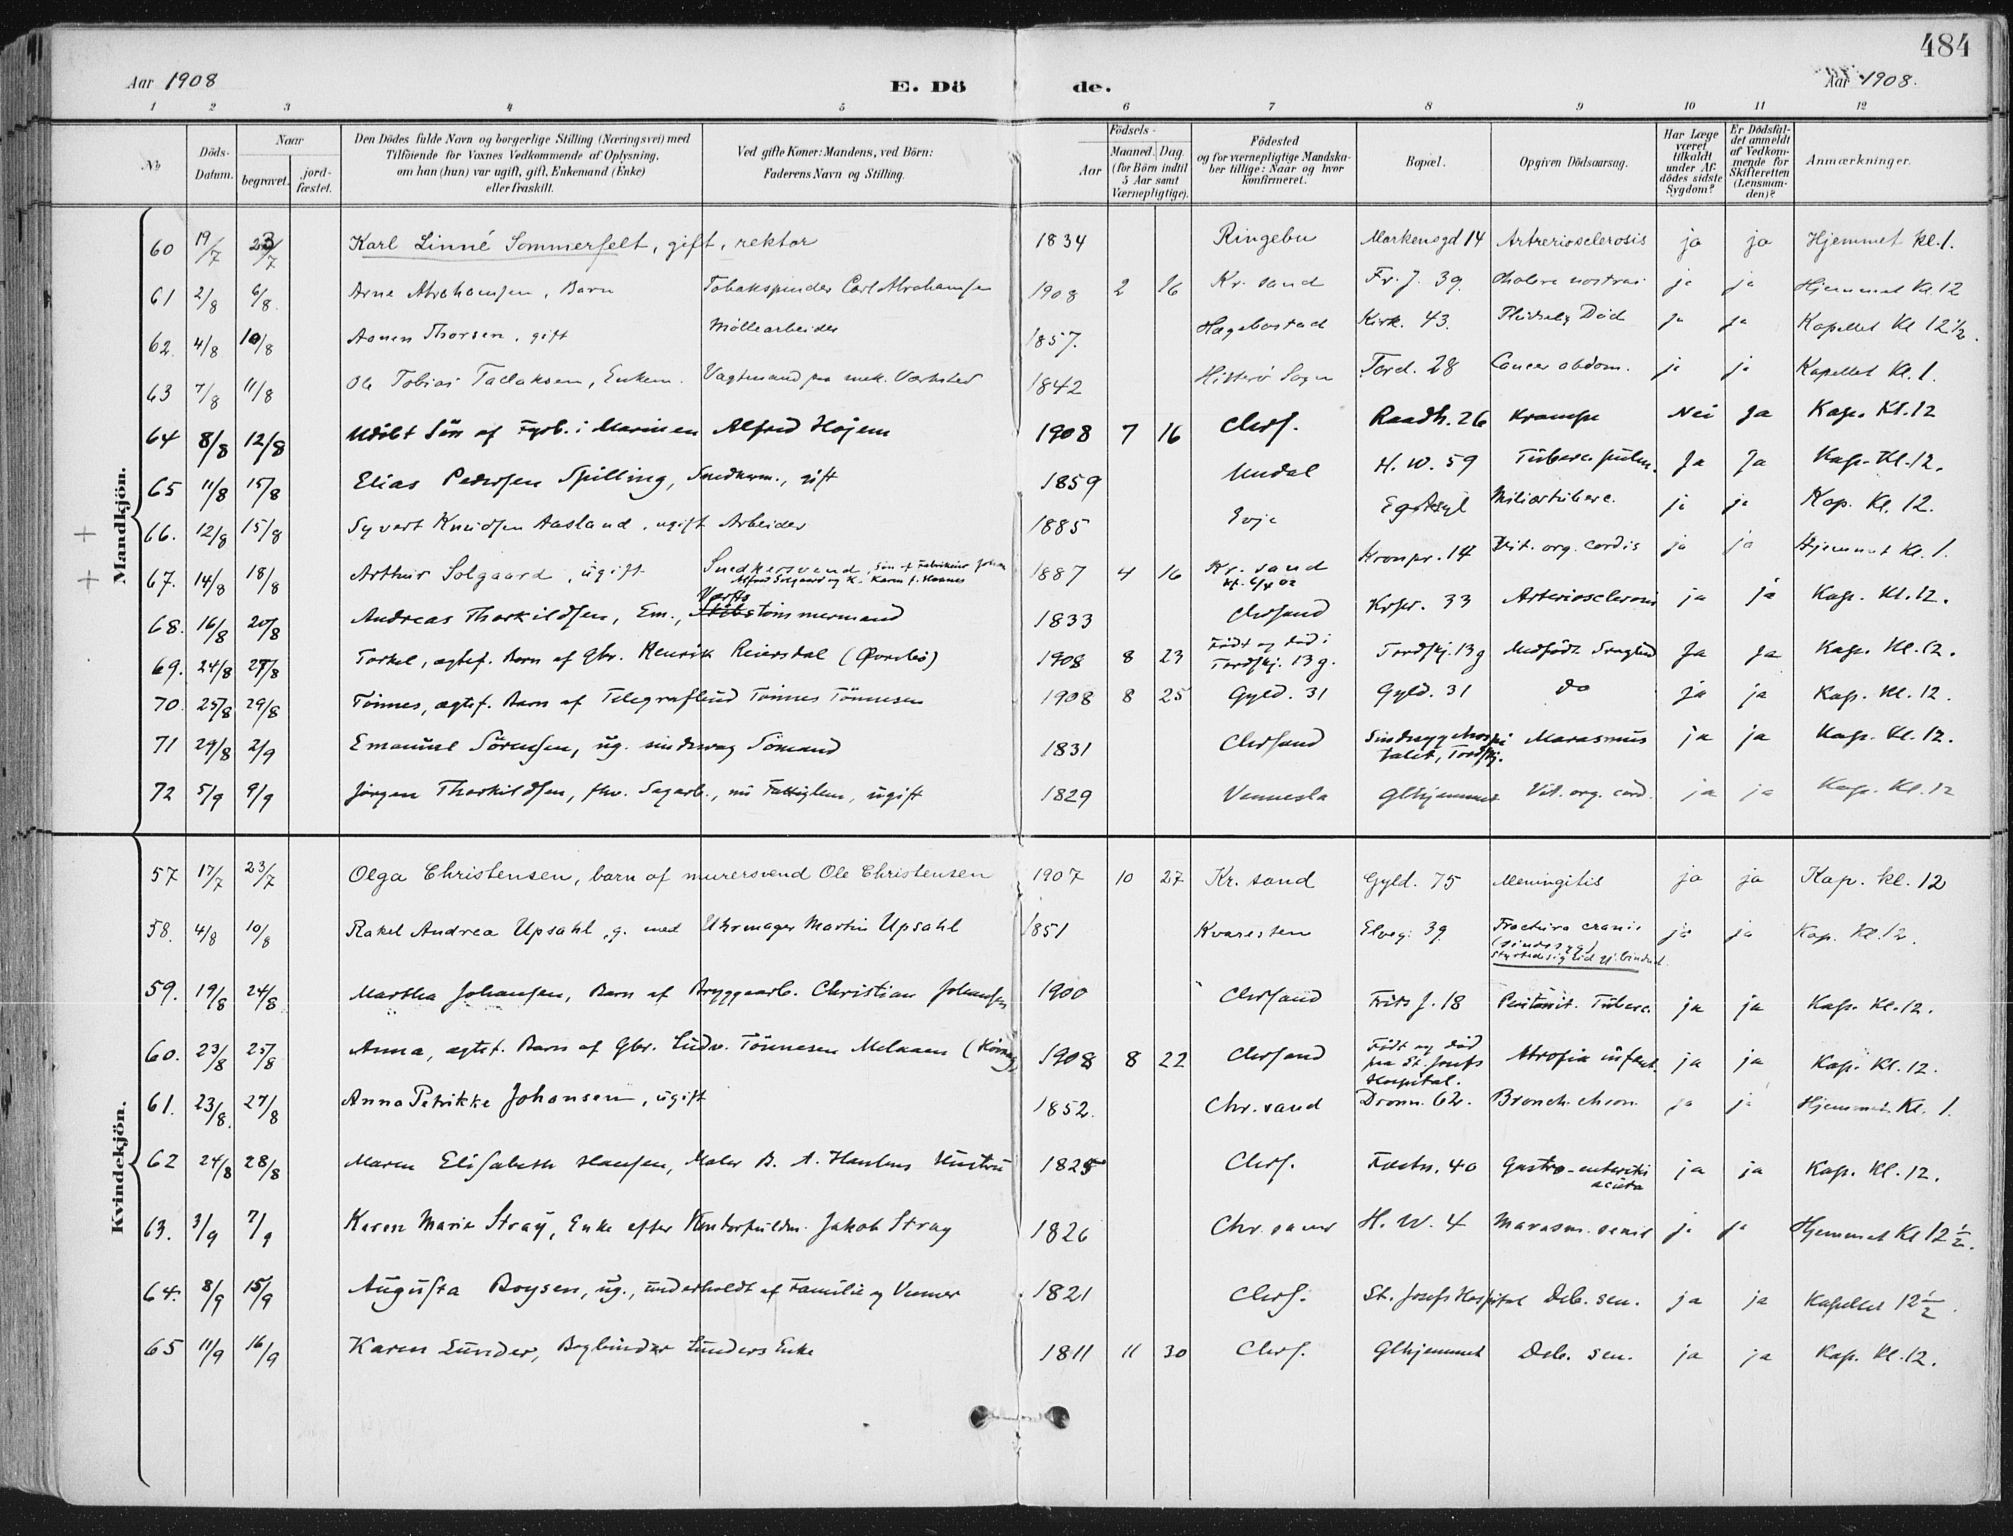 484
Aar 1908 E. Dö de. Aar 1908.
1 2 3 4 5 6 7 8 9 10 11 12
№ Döds-Datum. Naar begravet. jord-fæstet. Den Dödes fulde Navn og borgerlige Stilling (Næringsvei) med Tilföiende for Voxnes Vedkommende af Oplysning, om han (hun) var ugift, gift, Enkemand (Enke) eller fraskilt. Ved gifte Koner: Mandens, ved Börn: Faderens Navn og Stilling. Födsels- Aar Maaned. Dag. (for Börn indtil 5 Aar samt Værnepligtige). Födested og for værnepligtige Mandska-ber tillige: Naar og hvor konfirmeret. Bopæl. Opgiven Dödsaarsag. Har Læge været tilkaldt under Af-dödes sidste Sygdom? Er Dödsfal-det anmeldt af Vedkom-mende for Skifteretten (Lensman-den)? Anmærkninger.
Mandkjön.
60 19/7 23/7 Karl Linné Sommerfelt, gift, rektor 1834 Ringebu Markensgd 14 Artreriosclerosis ja ja Hjemmet kl. 1.
61 2/8 6/8. Arne Abrahamsen, Barn Tobakspinder Carl Abrahamsen 1908 2 16 Kr. sand Fr. J. 39. Cholera nostras ja ja Hjemmet Kl. 12
62. 4/8 10/8 Thorsen, gift Möllearbeider 1857. Hægebostad Kirk. 43. Pludselig Død ja ja Kapellet Kl 12 1/2.
63 7/8 11/8 Ole Tobias Tallaksen, Enkem. Vagtmand paa mek. Værksted 1842 Hitterö Sogn Tord. 28 Cancer abdom. ja ja Kapellet Kl. 1.
64 8/8 12/8 Udöbt Sön af Fyrb. i Marinen Alfred Höjem 1908 7 16 Chrs. Raadh. 26 Krampe Nei Ja Kap. Kl. 12
65 11/8 15/8 Elias Pedersen Spilling, Snedkerm., gift 1859 Undal H. W. 59 Tuberc. pulm. Ja Ja Kap. Kl. 12.
+ 66. 12/8 15/8 Syvert Knudsen Aasland, ugift Arbeider 1885 Evje Miliærtuberc. ja ja Kap. Kl. 12.
+ 67. 14/8 18/8 Arthur Solgaard, ugift Snedkersvend, Søn af Fabrikeier Johan Alfred Solgaard og K. Karen f. Hannes 1887 4 16 Kr. sand kf. 6/4 02 Kronpr. 14 Vit. org. cordis ja ja Hjemmet Kl. 1.
68. 16/8 20/8 Andreas Thorkildsen, Em., Værfts tömmermand 1833 Chrsand Krpr. 33 Arteriosclerosis ja ja Kap. Kl. 12.
69. 24/8 27/8 Torkel, ægtef. Barn af Gbr. Henrik Reiersdal (Øvrebö) 1908 8 23 Født og død i Tordskj. 13 g. Tordskj. 13 g Medfödt Svaghed Ja Ja Kap. Kl. 12.
70. 25/8 29/8 Tönnes, ægtef. Barn af Telegrafbud Tönnes Tönnesen 1908 8 25 Gyld. 31 Gyld. 31 Do ja ja Kap. Kl. 12.
71 29/8 2/9 Emanuel Sörensen, ug. sindssvag Sömand 1831 Chrsand Sindssygehospitalet, Tordskj. Marasmus ja ja Kap. Kl. 12.
72 5/9 9/9 Jörgen Thorkildsen, fhv. Sagarb., nu Fattiglem, ugift 1829 Vennesla Glhjemmet Vit. org. cord. ja ja Kap. Kl. 12
Kvindekjön.
57 17/7 23/7 Olga Christensen, barn af murersvend Ole Christensen 1907 10 27 Kr. sand Gyld. 75 Meningitis ja ja Kap. kl. 12
58. 4/8 10/8 Rakel Andrea Upsahl, g. med Uhrmager Martin Upsahl 1851 Elveg. 39. Fractura cranii (sindssyg) ja ja Kap. Kl. 12.
59. 19/8 24/8 Martha Johansen, Barn af Bryggearb. Christian Johansen 1900 Chrsand Frits J. 18 Peritonit. Tuberc. ja ja Kap. Kl. 12.
60. 23/8 25/8 Anna, ægtef. Barn af Gbr. Ludv. Tönnesen 1908 8 22 Chrsand Født og død paa St. Josefs Hospital. Atrofia infant. ja ja Kap. Kl. 12.
61. 23/8. 27/8 Anna Petrikke Johansen, ugift 1852. Chr. sand Dronn. 62. Bronch. chron. ja ja Hjemmet Kl. 1.
62 24/8 28/8 Maren Elisabeth Hansen, Maler B. A. Hansens Hustru 1825 Chrs. Fæstn. 40 Gastro-enteritis acuta ja ja Kap. Kl. 12.
63. 3/9 7/9 Karen Marie Stray, Enke efter Kontorfuldm. Jakob Stray 1826 Chr. sand H. W. 4 Marasm. senil ja ja Hjemmet Kl 12 1/2.
64. 8/9 15/9 Augusta Boysen, ug., underholdt af Familie og Venner 1821 Chrs. St. Josefs Hospital Deb. sen. ja ja Kapellet 12 1/2.
65 11/9 16/9 Karen Lunder, Bogbinder Lunders Enke 1811 11 30 Chrs. Glhjemmet Deb. sen. ja ja Kap. Kl. 12.